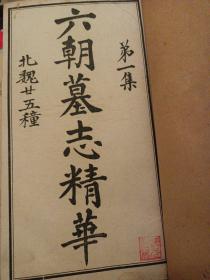 第一集
六朝墓志精華
北魏廿五種